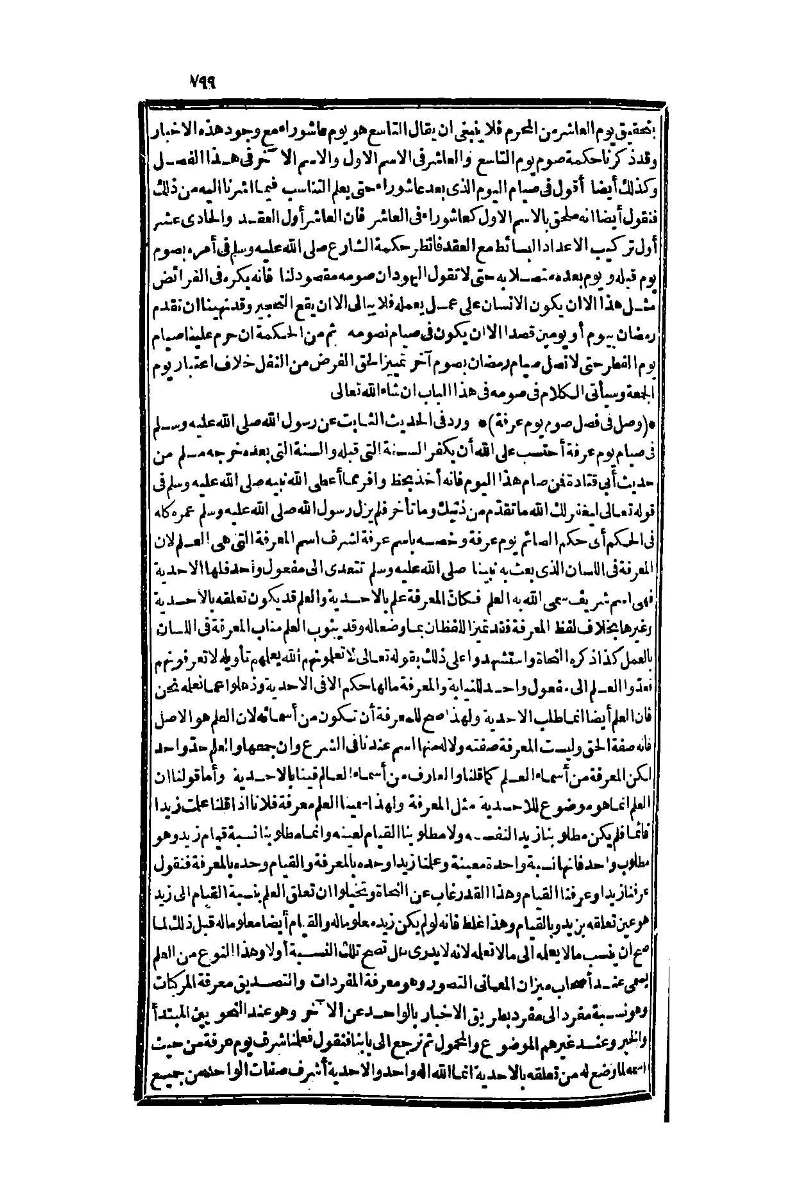 ٧٩٩
بتحقيق يوم العاشر من المحرم فلا ينبغى ان يقال التاسع هو يوم عاشوراء مع وجود هذه الاخبار
وقد ذكرنا حكمة صوم يوم التاسع والعاشر فى الاسم الاول والاسم الا خر فى هذا الفصل
وكذلك أيضا أقول فى صيام اليوم الذى بعد عاشوراء حتى يعلم التناسب فيما اشرنا اليه من ذلك
فنقول أيضا انه ملحق بالاسم الاول كعاشوراء فى العاشر فان العاشر أول العقد والحادى عشر
أول تركيب الاعداد البسائط مع العقد فانظر حكمة الشارع صلى الله عليه وسلم فى أمره بصوم
يوم قبله ويوم بعده متصلا به حتى لا تقول اليهود ان صومه مقصود لنا فانه يكره فى الفرائض
مثل هذا الا ان يكون الانسان على عمل يعمله فلا يبالى الا ان يقع التحجير وقد نهينا ان نقدم
رمضان بيوم أو يومين قصدا الا ان يكون فى صيام نصومه ثم من الحكمة ان حرم علينا صيام
يوم الفطر حتى لا نصل صيام رمضان بصوم آخر تمييزا لحق الفرض من النفل خلاف اعتبار يوم
الجمعة وسيأتى الكلام فى صومه فى هذا الباب ان شاء الله تعالى
*(وصل فى فصل صوم يوم عرفة)* ورد فى الحديث الثابت عن رسول الله صلى الله عليه وسلم
فى صيام يوم عرفة أحتسب على الله أن يكفر السنة التى قبله والسنة التى بعده خرجه مسلم من
حديث أبى قتادة فمن صام هذا اليوم فانه أخذ بحظ وافر مما أعطى الله نبيه صلى الله عليه وسلم فى
قوله تعالى ليغفر لك الله ما تقدم من ذنبك وما تأخر فلم يزل رسول الله صلى الله عليه وسلم عمره كله
فى الحكم أى حكم الصائم يوم عرفة وخصه باسم عرفة لشرف اسم المعرفة التى هى العلم لان
المعرفة فى اللسان الذى بعث به نبينا صلى الله عليه وسلم تتعدى الى مفعول واحد فلها الاحدية
فهى اسم شريف سمى الله به العلم فكانّ المعرفة علم بالاحدية والعلم قد يكون تعلقه بالاحدية
وغيرها بخلاف لفظ المعرفة فقد تميز اللفظان بما وضعا له وقد ينوب العلم مناب المعرفة فى اللسان
بالعمل كذا ذكره النحاة واستشهدوا على ذلك بقوله تعالى لا تعلمونهم الله يعلمهم تأويله لا تعرفونهم
فعدّوا العلم الى مفعول واحد للنيابة والمعرفة مالها حكم الا فى الاحدية وذهلوا عما نعلمه نحن
فان العلم أيضا انما طلب الاحدية ولهذا صح للمعرفة أن تكون من أسمائه لان العلم هو الاصل
فانه صفة الحق وليست المعرفة صفته ولا له منها اسم عندنا فى الشرع وان جمعها والعلم حدّ واحد
لكن المعرفة من أسماء العلم كما قلنا والعارف من أسماء العالم فينا بالاحدية وأما قولنا ان
العلم انما هو موضوع للاحدية مثل المعرفة ولهذا سمينا العلم معرفة فلانا اذا قلنا علمت زيدا
قائما فلم يكن مطلوبنا زيدا لنفسه ولا مطلوبنا القيام لعينه وانما مطلوبنا نسبة قيام زيد وهو
مطلوب واحد فانها نسبة واحدة معينة وعلمنا زيدا وحده بالمعرفة والقيام وحده بالمعرفة فنقول
عرفنا زيدا وعرفنا القيام وهذا القدر غاب عن النحاة وتخيلوا ان تعلق العلم بنسبة القيام الى زيد
هو عين تعلقه بزيد وبالقيام وهذا غلط فانه لو لم يكن زيد معلوما له والقيام أيضا معلوما له قبل ذلك لما
صح ان ينسب ما لا يعلمه الى ما لا تعلمه لانه لا يدرى هل تصح تلك النسبة أو لا وهذا النوع من العلم
يسمى عند أصحاب ميزان المعانى التصور وهو معرفة المفردات والتصديق معرفة المركبات
وهو نسبة مفرد الى مفرد بطريق الاخبار بالواحد عن الا خر وهو عند النحو يين المبتدأ
والخبر وعند غيرهم الموضوع والمحمول ثم نرجع الى بابنا فنقول فعلمنا شرف يوم عرفة من حيث
اسمه لما وضع له من تعلقه بالاحدية انما الله اله واحد والاحدية أشرف صفات الواحد من جميع